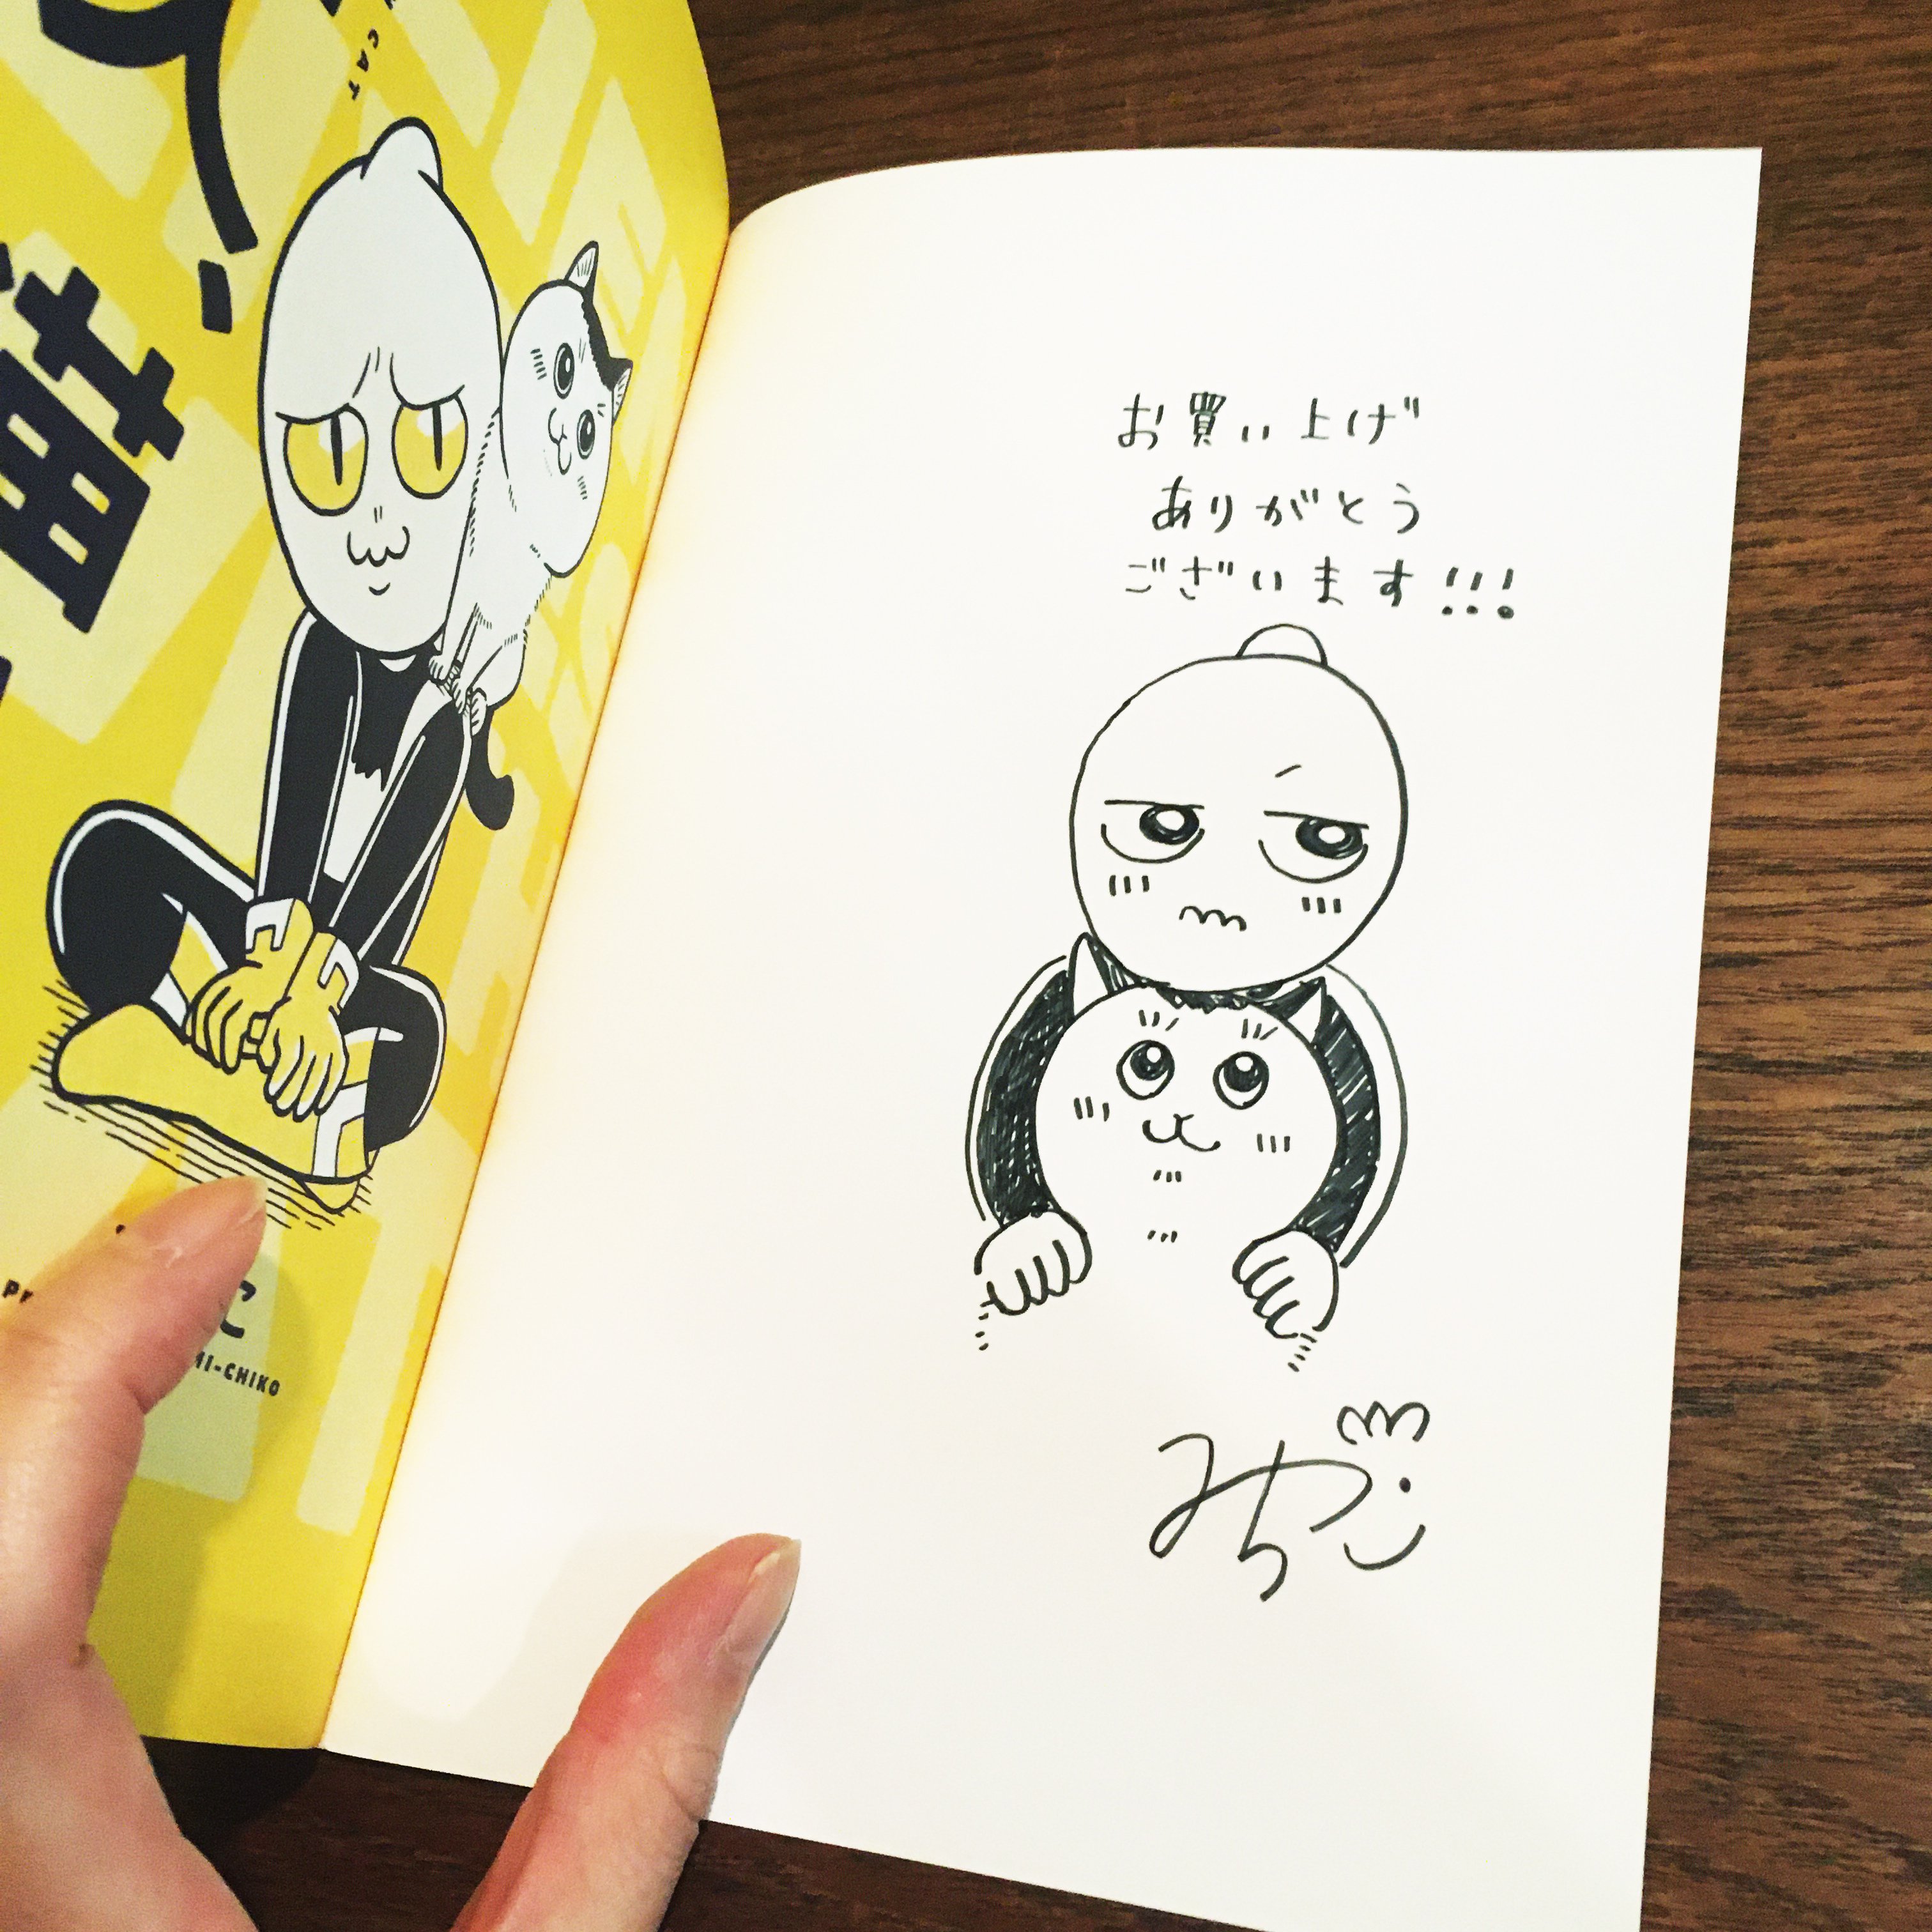 CAT
お買い上げ
ありがとう
ございます!!!
MI-CHIKO
みちこ